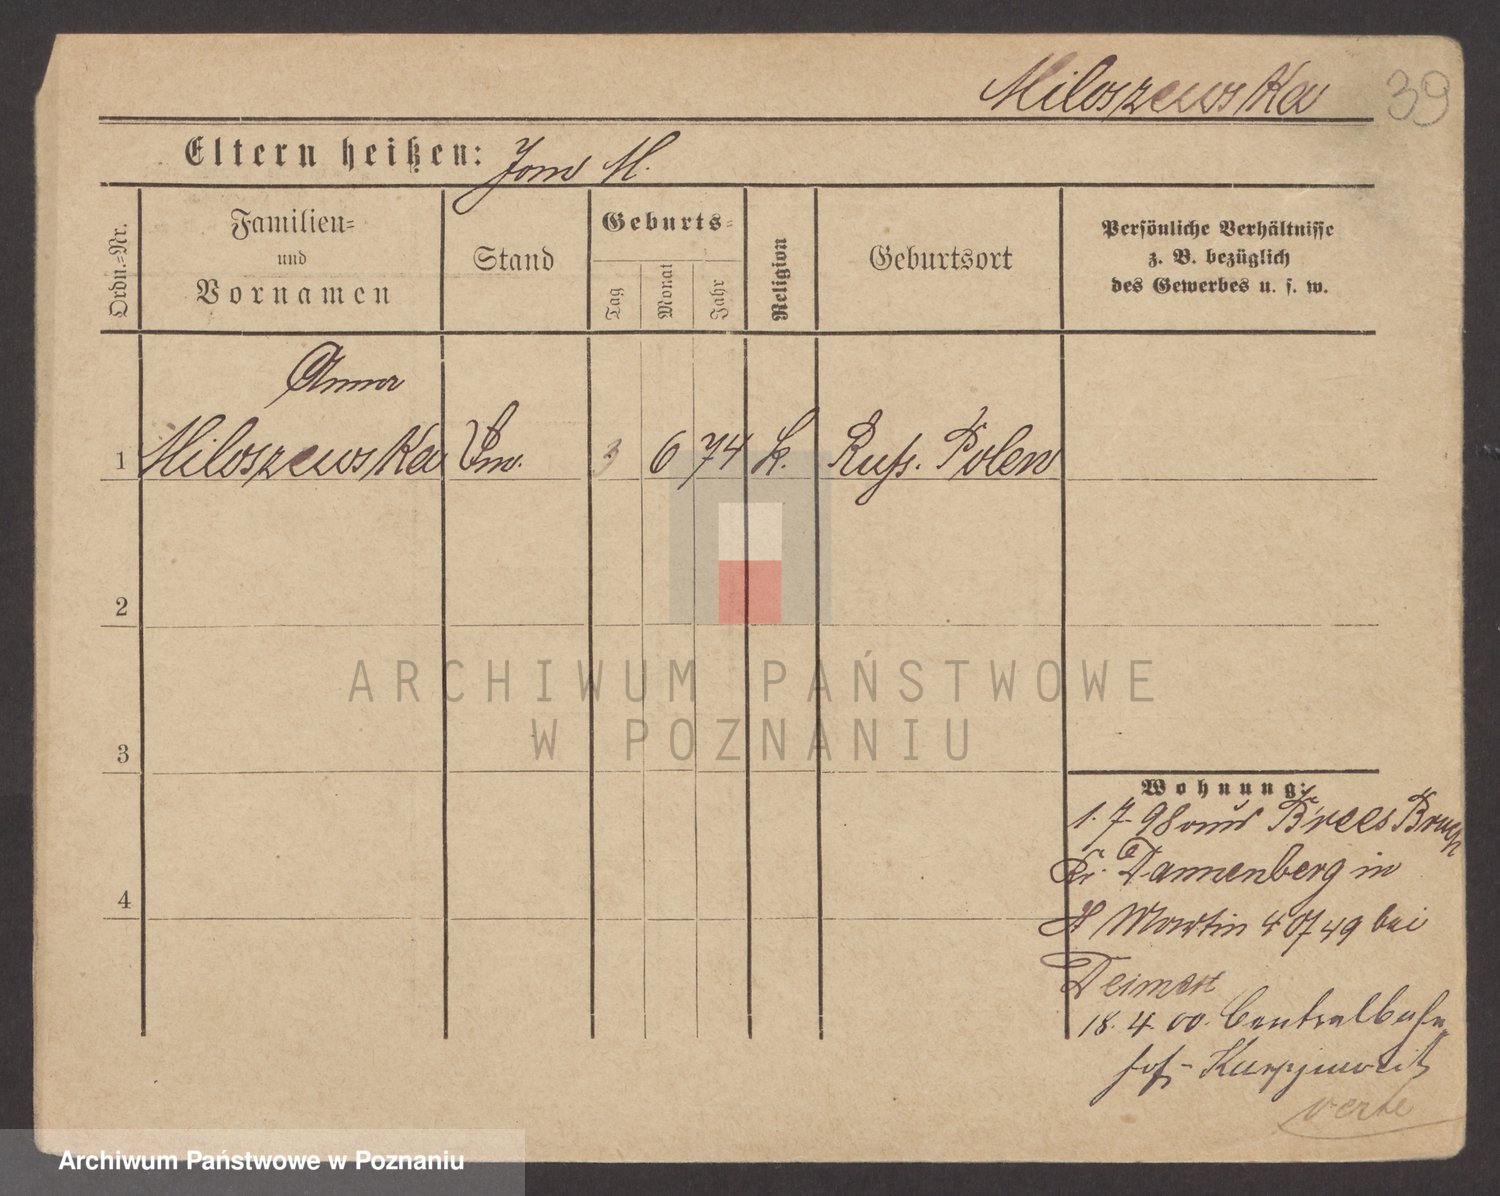 Miloszewska 39
Eltern heißen: Jan M.
Ordn.-Nr.
Familien-
und
Vornamen
Stand
Geburts-
Tag
Monat
Jahr
Religion
Geburtsort
Persönliche Verhältnisse
z. B. bezüglich
des Gewerbes u. s. w.
Anna
1 Miloszewska 3 6 74 k. Russ. Polen
2
3
4
Wohnung:
1. 7. 98 aus Breese Bruch
Kr. Dannenberg in
St Martin 40/49 bei
18. 4. 00. Centralbahn
hof-
verte
ARCHIWUM PAŃSTWOWE
W POZNANIU
Archiwum Państwowe w Poznaniu